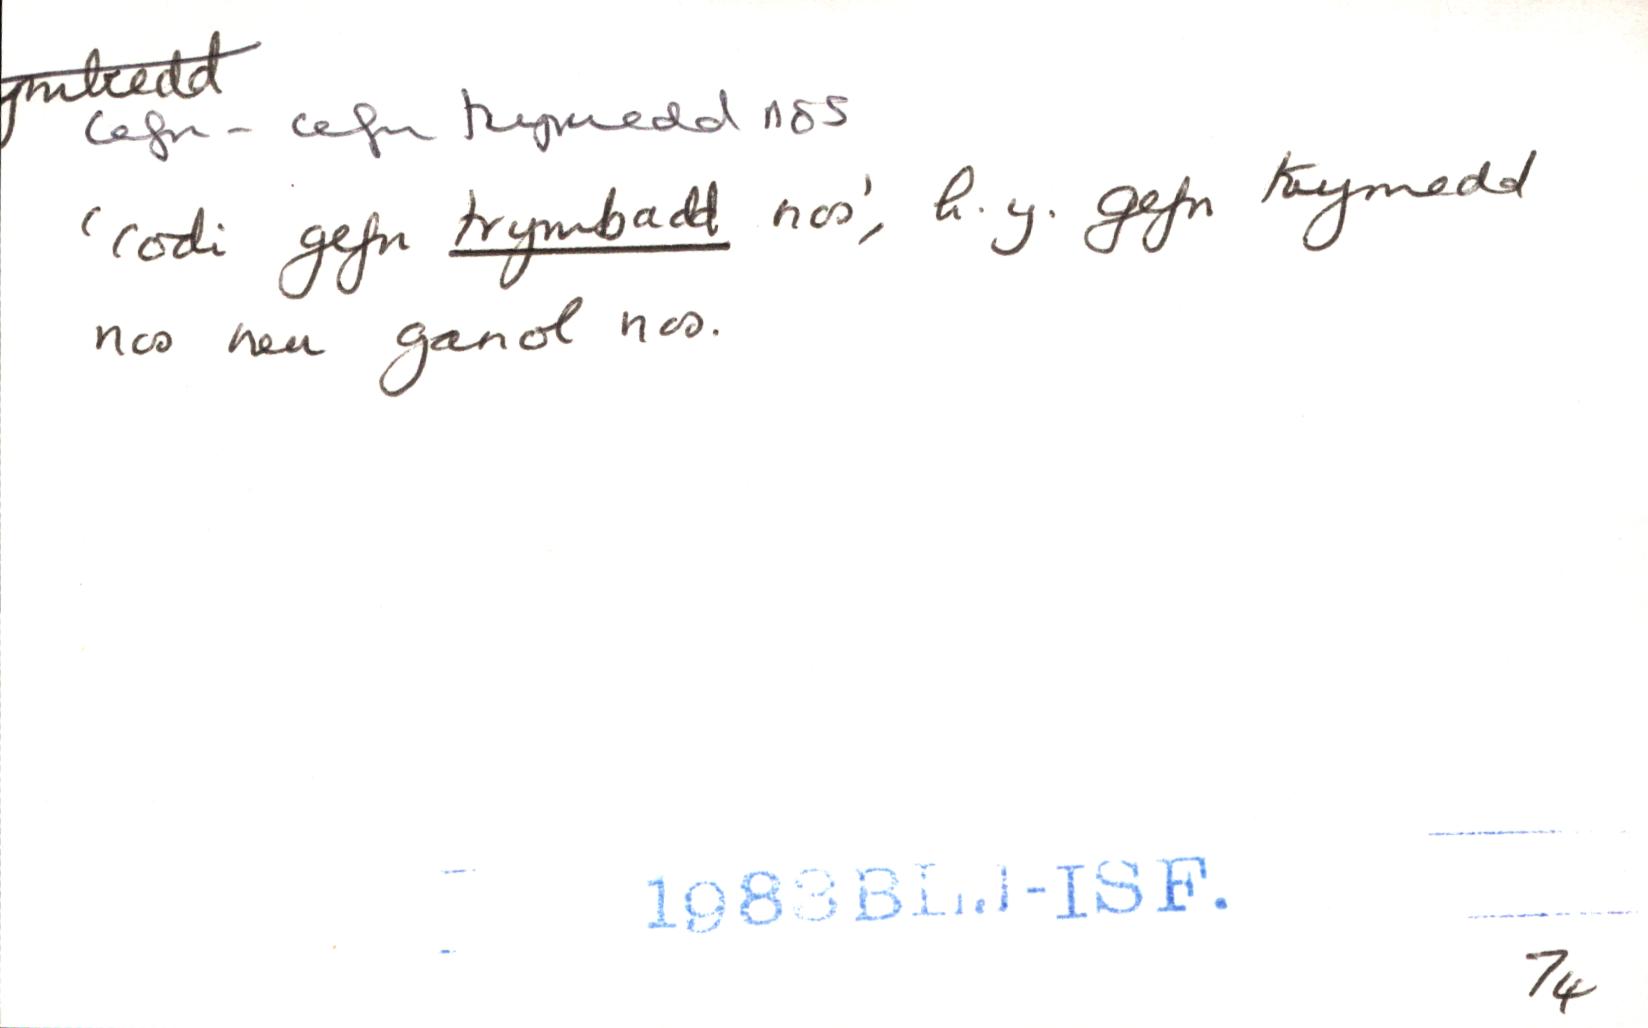 ymbredd
cefn - cefn trymedd nos
'codi gefn trymbadd nos', h.y. gefn trymedd
nos neu ganol nos.
1983BLJ-ISF.
74